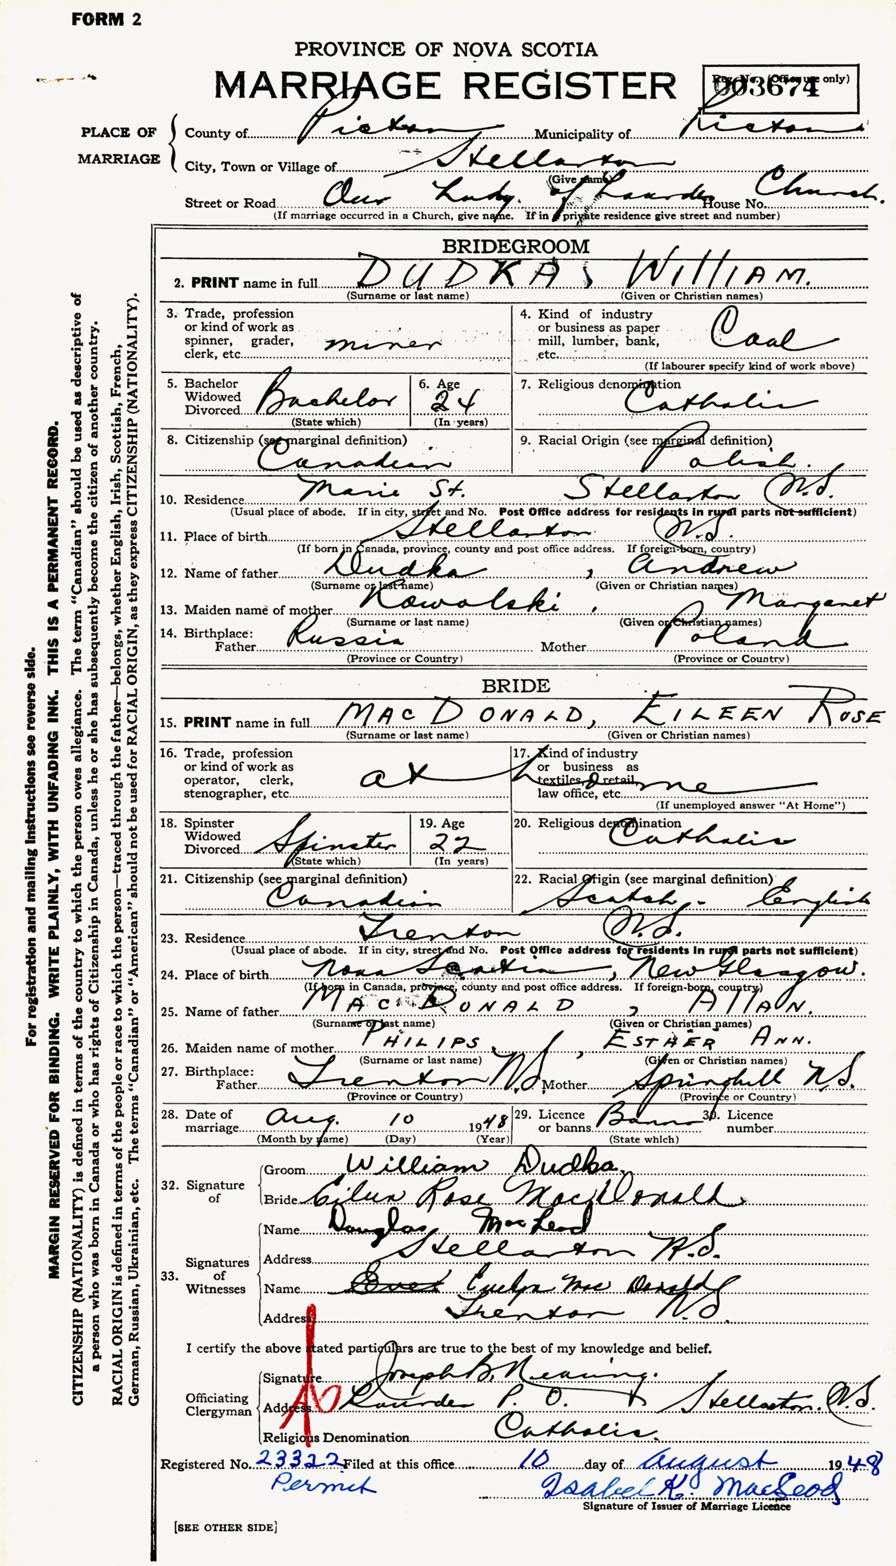 FORM 2
PROVINCE OF NOVA SCOTIA
MARRIAGE REGISTER
Reg. No. (Office use only)
003674
PLACE OF MARRIAGE
County of Pictou Municipality of Pictou
City, Town or Village of Stellarton
(Give name)
Street or Road Our Lady of Lourdes Church. House No.
(If marriage occurred in a Church, give name. If in private residence give street and number)
BRIDEGROOM
2. PRINT name in full DUDKA, WILLIAM.
(Surname or last name) (Given or Christian names)
3. Trade, profession or kind of work as spinner, grader, clerk, etc. miner
4. Kind of industry or business as paper mill, lumber, bank, etc. Coal
(If labourer specify kind of work above)
5. Bachelor Widowed Divorced Bachelor
(State which)
6. Age 24
(In years)
7. Religious denomination Catholic
8. Citizenship (see marginal definition) Canadian
9. Racial Origin (see marginal definition) Polish.
10. Residence Marie St. Stellarton N.S.
(Usual place of abode. If in city, street and No. Post Office address for residents in rural parts not sufficient)
11. Place of birth Stellarton N.S.
(If born in Canada, province, county and post office address. If foreign-born, country)
12. Name of father Dudka, Andrew
(Surname or last name) (Given or Christian names)
13. Maiden name of mother Kowalski, Margaret
(Surname or last name) (Given or Christian names)
14. Birthplace: Father Russia Mother Poland
(Province or Country) (Province or Country)
BRIDE
15. PRINT name in full MACDONALD, EILEEN ROSE
(Surname or last name) (Given or Christian names)
16. Trade, profession or kind of work as operator, clerk, stenographer, etc. at
17. Kind of industry or business as textiles, retail, law office, etc. home
(If unemployed answer "At Home")
18. Spinster Widowed Divorced Spinster
(State which)
19. Age 22
(In years)
20. Religious denomination Catholic
21. Citizenship (see marginal definition) Canadian
22. Racial Origin (see marginal definition) Scotch - English
23. Residence Trenton N.S.
(Usual place of abode. If in city, street and No. Post Office address for residents in rural parts not sufficient)
24. Place of birth Nova Scotia, New Glasgow.
(If born in Canada, province, county and post office address. If foreign-born, country)
25. Name of father MACDONALD, ALLAN.
(Surname or last name) (Given or Christian names)
26. Maiden name of mother PHILIPS, ESTHER ANN.
(Surname or last name) (Given or Christian names)
27. Birthplace: Father Trenton N.S. Mother Springhill N.S.
(Province or Country) (Province or Country)
28. Date of marriage Aug. 10 1948
(Month by name) (Day) (Year)
29. Licence or banns Banns
(State which)
30. Licence number
32. Signature of
Groom William Dudka
Bride Eileen Rose MacDonald
33. Signatures of Witnesses
Name Douglas MacLeod
Address Stellarton N.S.
Name Evelyn Mac Donald
Address Trenton N.S.
I certify the above stated particulars are true to the best of my knowledge and belief.
Officiating Clergyman
Signature Joseph B. Nearing.
Address Lourdes P. O. Stellarton. N.S.
Religious Denomination Catholic.
Registered No. 23322 Filed at this office 10 day of August 1948
Permit Isabel K. MacLeod
Signature of Issuer of Marriage Licence
[SEE OTHER SIDE]
For registration and mailing instructions see reverse side.
MARGIN RESERVED FOR BINDING. WRITE PLAINLY, WITH UNFADING INK. THIS IS A PERMANENT RECORD.
CITIZENSHIP (NATIONALITY) is defined in terms of the country to which the person owes allegiance. The term "Canadian" should be used as descriptive of
a person who was born in Canada or who has rights of Citizenship in Canada, unless he or she has subsequently become the citizen of another country.
RACIAL ORIGIN is defined in terms of the people or race to which the person—traced through the father—belongs, whether English, Irish, Scottish, French,
German, Russian, Ukrainian, etc. The terms "Canadian" or "American" should not be used for RACIAL ORIGIN, as they express CITIZENSHIP (NATIONALITY).